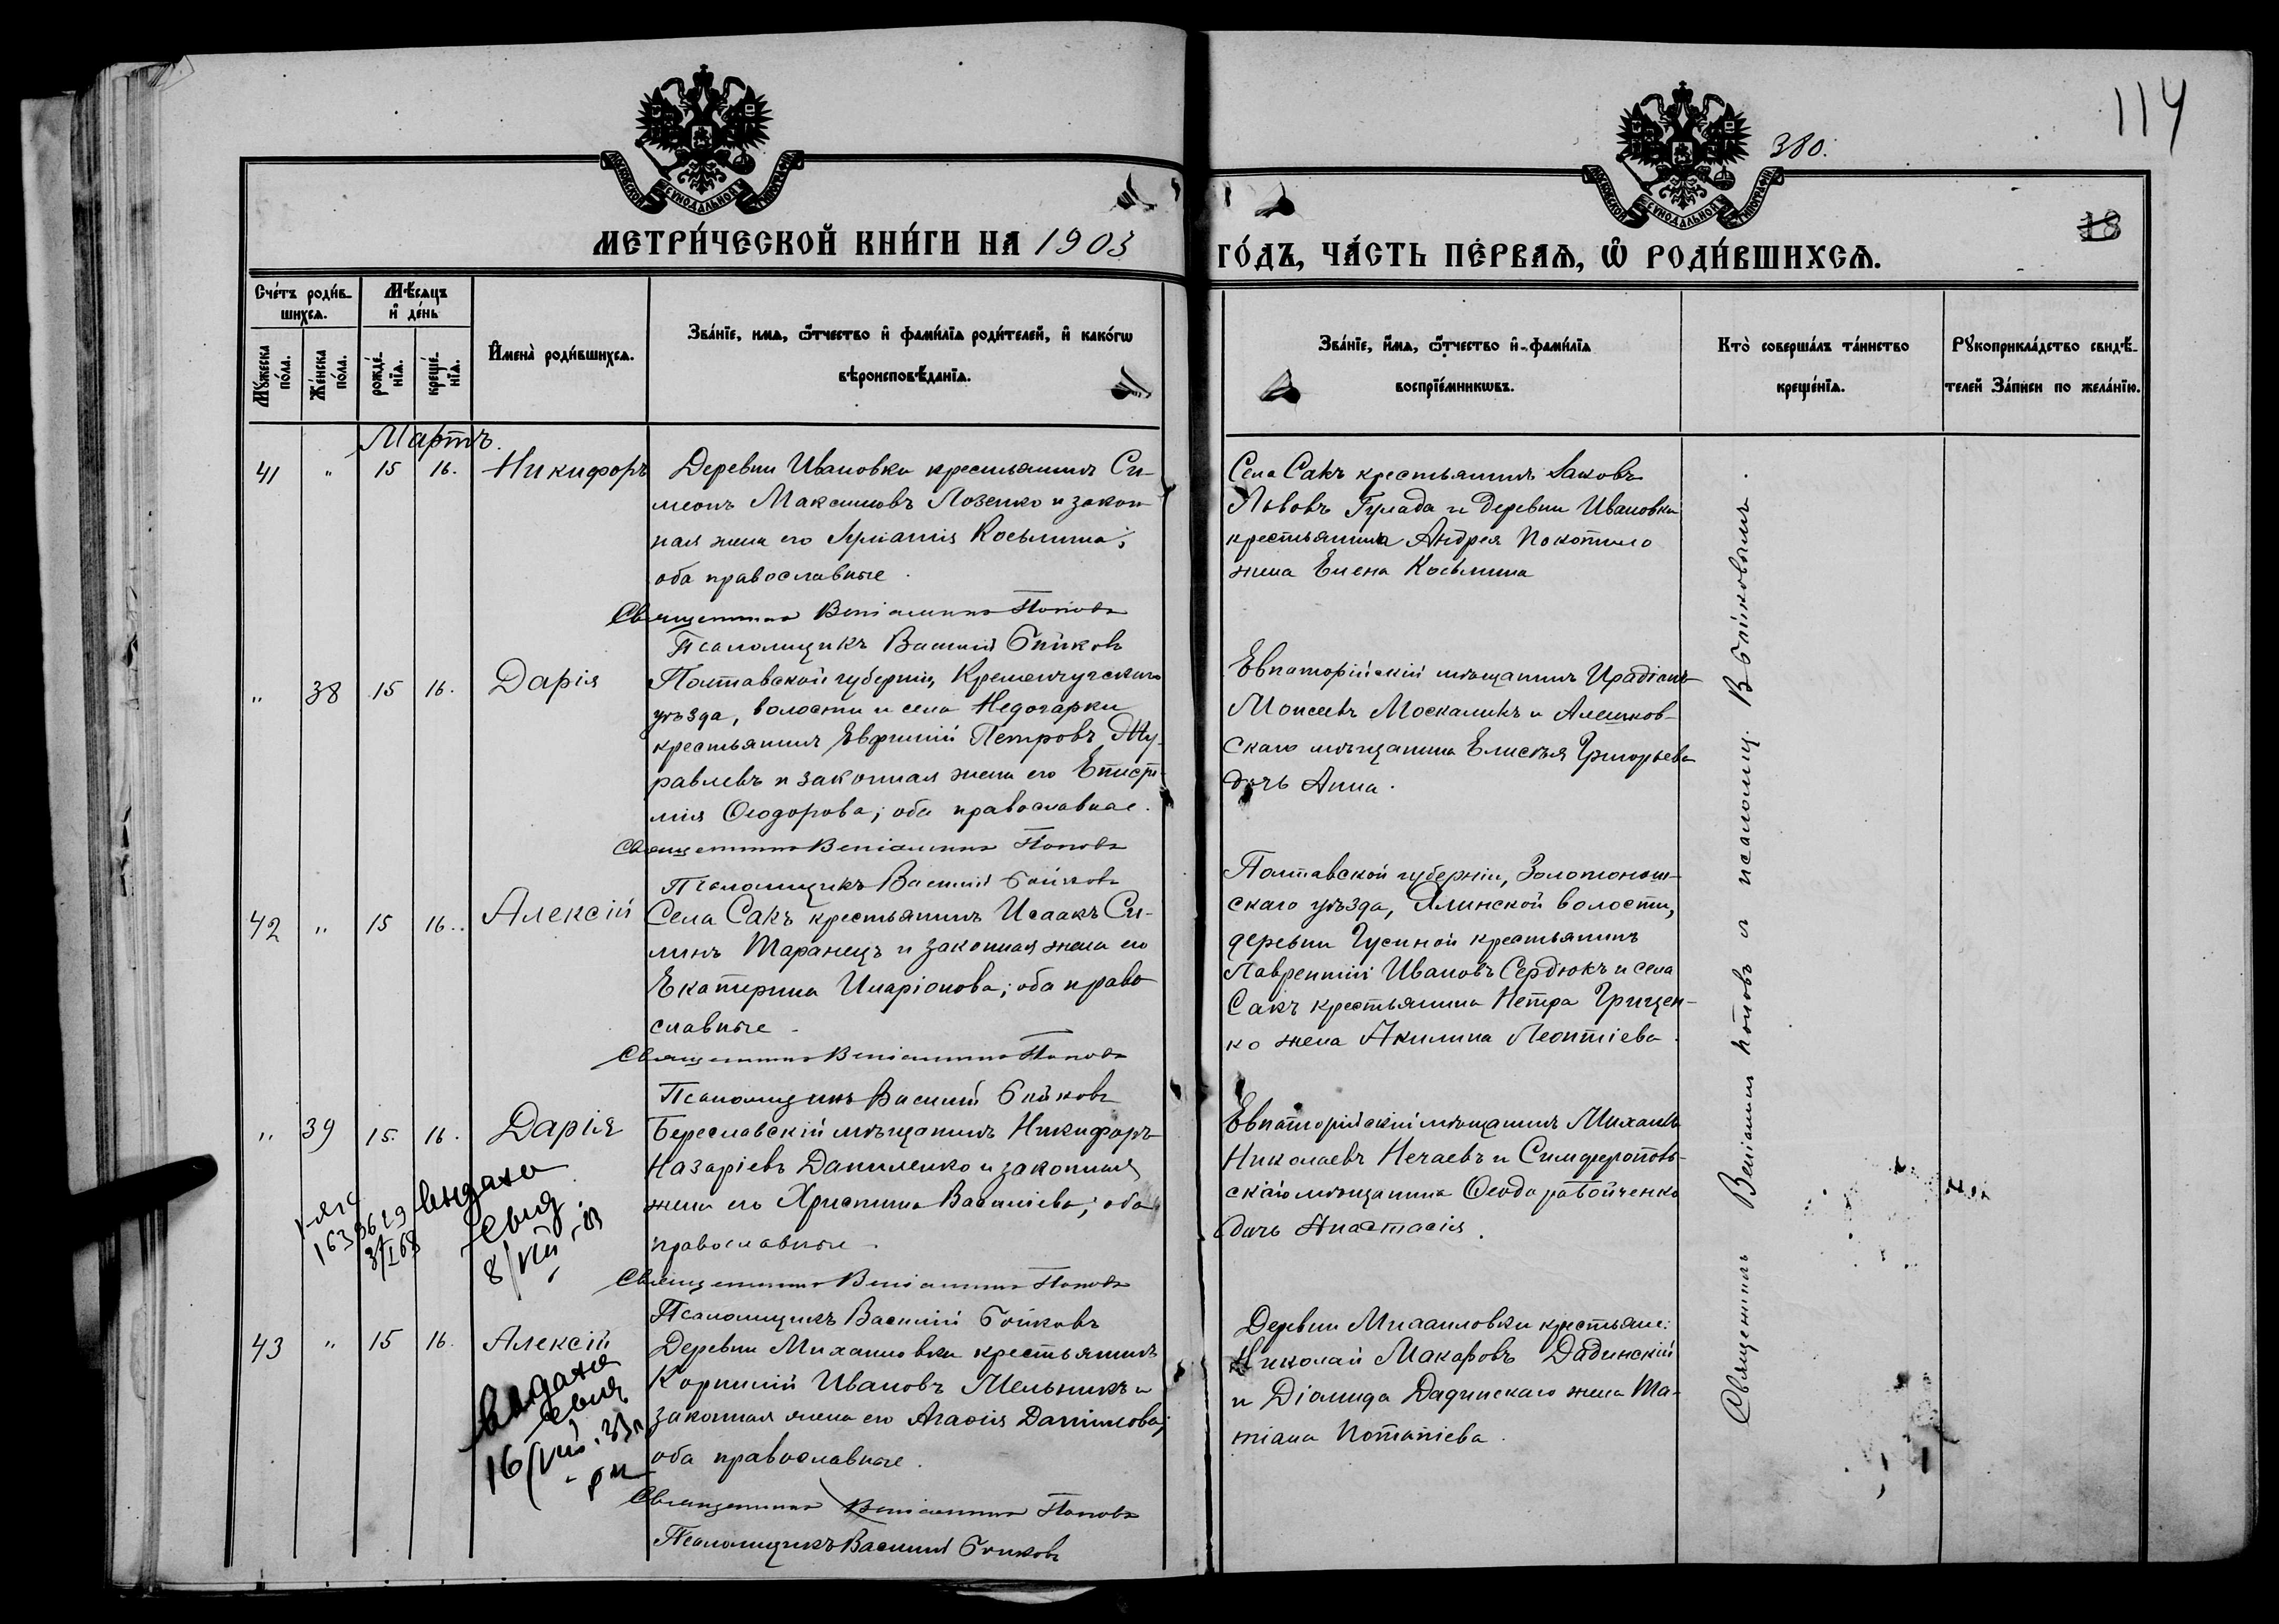 114
380.
18
МОСКОВСКОЙ СѴНОДАЛЬНОЙ ТИПОГРАФІИ
МОСКОВСКОЙ СѴНОДАЛЬНОЙ ТИПОГРАФІИ
МЕТРИ́ЧЕСКОЙ КНИ́ГИ НА 1903
ГО́ДЪ, ЧА́СТЬ ПЕ́РВАѦ, Ѽ РОДИ́ВШИХСѦ.
Сче́тъ роди́в-
шихсѧ.
Мѣ́сѧцъ
и҆ де́нь
Мꙋ́жеска по́ла.
Же́нска по́ла.
рожде́-
нїѧ.
креще́-
нїѧ.
И҆мена̀ роди́вшихсѧ.
Зва́нїе, имѧ, ѻ҆́тчество и҆ фами́лїѧ роди́телей, и҆ како́гѡ
вѣроисповѣ́данїѧ.
Зва́нїе, и҆́мѧ, ѻ҆́тчество и҆ фами́лїѧ
воспрїе́мникѡвъ.
Кто̀ соверша́лъ та́инство
креще́нїѧ.
Рꙋкоприкла́дство свидѣ́-
телей За́писи по жела́нїю.
Мартъ.
41 " 15 16. Никифоръ
Деревни Ивановки крестьянинъ Си-
меонъ Максимовъ Лозенко и закон
ная жена его Козьмина;
оба православные.
Священникъ Веніаминъ Поповъ
Псаломщикъ Василій Бойковъ
Села Сакъ крестьянинъ Іаковъ
Львовъ Гулада и Деревни Ивановки
крестьянина Андрея Покотило
жена Елена Козьмина
" 38 15 16. Дарія
Полтавской губерніи, Кременчугскаго
уѣзда, волости и села Недогарки
крестьянинъ Евфимій Петровъ Жу-
равлевъ и законная жена его Еписти-
мія Ѳеодорова; оба православные.
Священникъ Веніаминъ Поповъ
Псаломщикъ Василій Бойковъ
Евпаторійскій мѣщанинъ Иродіонъ
Моисеевъ Москаликъ и Алешков-
скаго мѣщанина Елисѣя Григорьева
дочь Анна.
42 " 15 16. Алексій
Села Сакъ крестьянинъ Исаакъ Си-
линъ Таранецъ и законная жена его
Екатерина Иларіонова; оба право
славные.
Священникъ Веніаминъ Поповъ
Псаломщикъ Василій Бойковъ
Полтавской губерніи, Золотонош-
скаго уѣзда, волости,
деревни Гусиной крестьянинъ
Лаврентій Ивановъ Сердюкъ и села
Сакъ крестьянина Петра Грицен-
ко жена Акилина Леонтіева.
" 39 15. 16. Дарія
Бериславскій мѣщанинъ Никифоръ
Назаріевъ Даниленко и законная
жена его Христина Василіева; оба
православные.
Священникъ Веніаминъ Поповъ
Псаломщикъ Василій Бойковъ
Евпаторійскій мѣщанинъ Михаилъ
Николаевъ Нечаевъ и Симферополь-
скаго мѣщанина Ѳеодора Бойченко
дочь Анастасія.
выдано
свид.
43 " 15 16. Алексій
Деревни Михайловки крестьянинъ
Корнилій Ивановъ Мельникъ и
законная жена его Агаѳія Даніилова;
оба православные.
Священникъ Веніаминъ Поповъ
Псаломщикъ Василій Бойковъ
Деревни Михайловки крестьяне:
Николай Макаровъ Дадинскій
и Діомида Дадинскаго жена Та-
тіана Потапіева.
выдано
свид
Священникъ Веніаминъ Поповъ и псаломщ. В Бойковымъ.